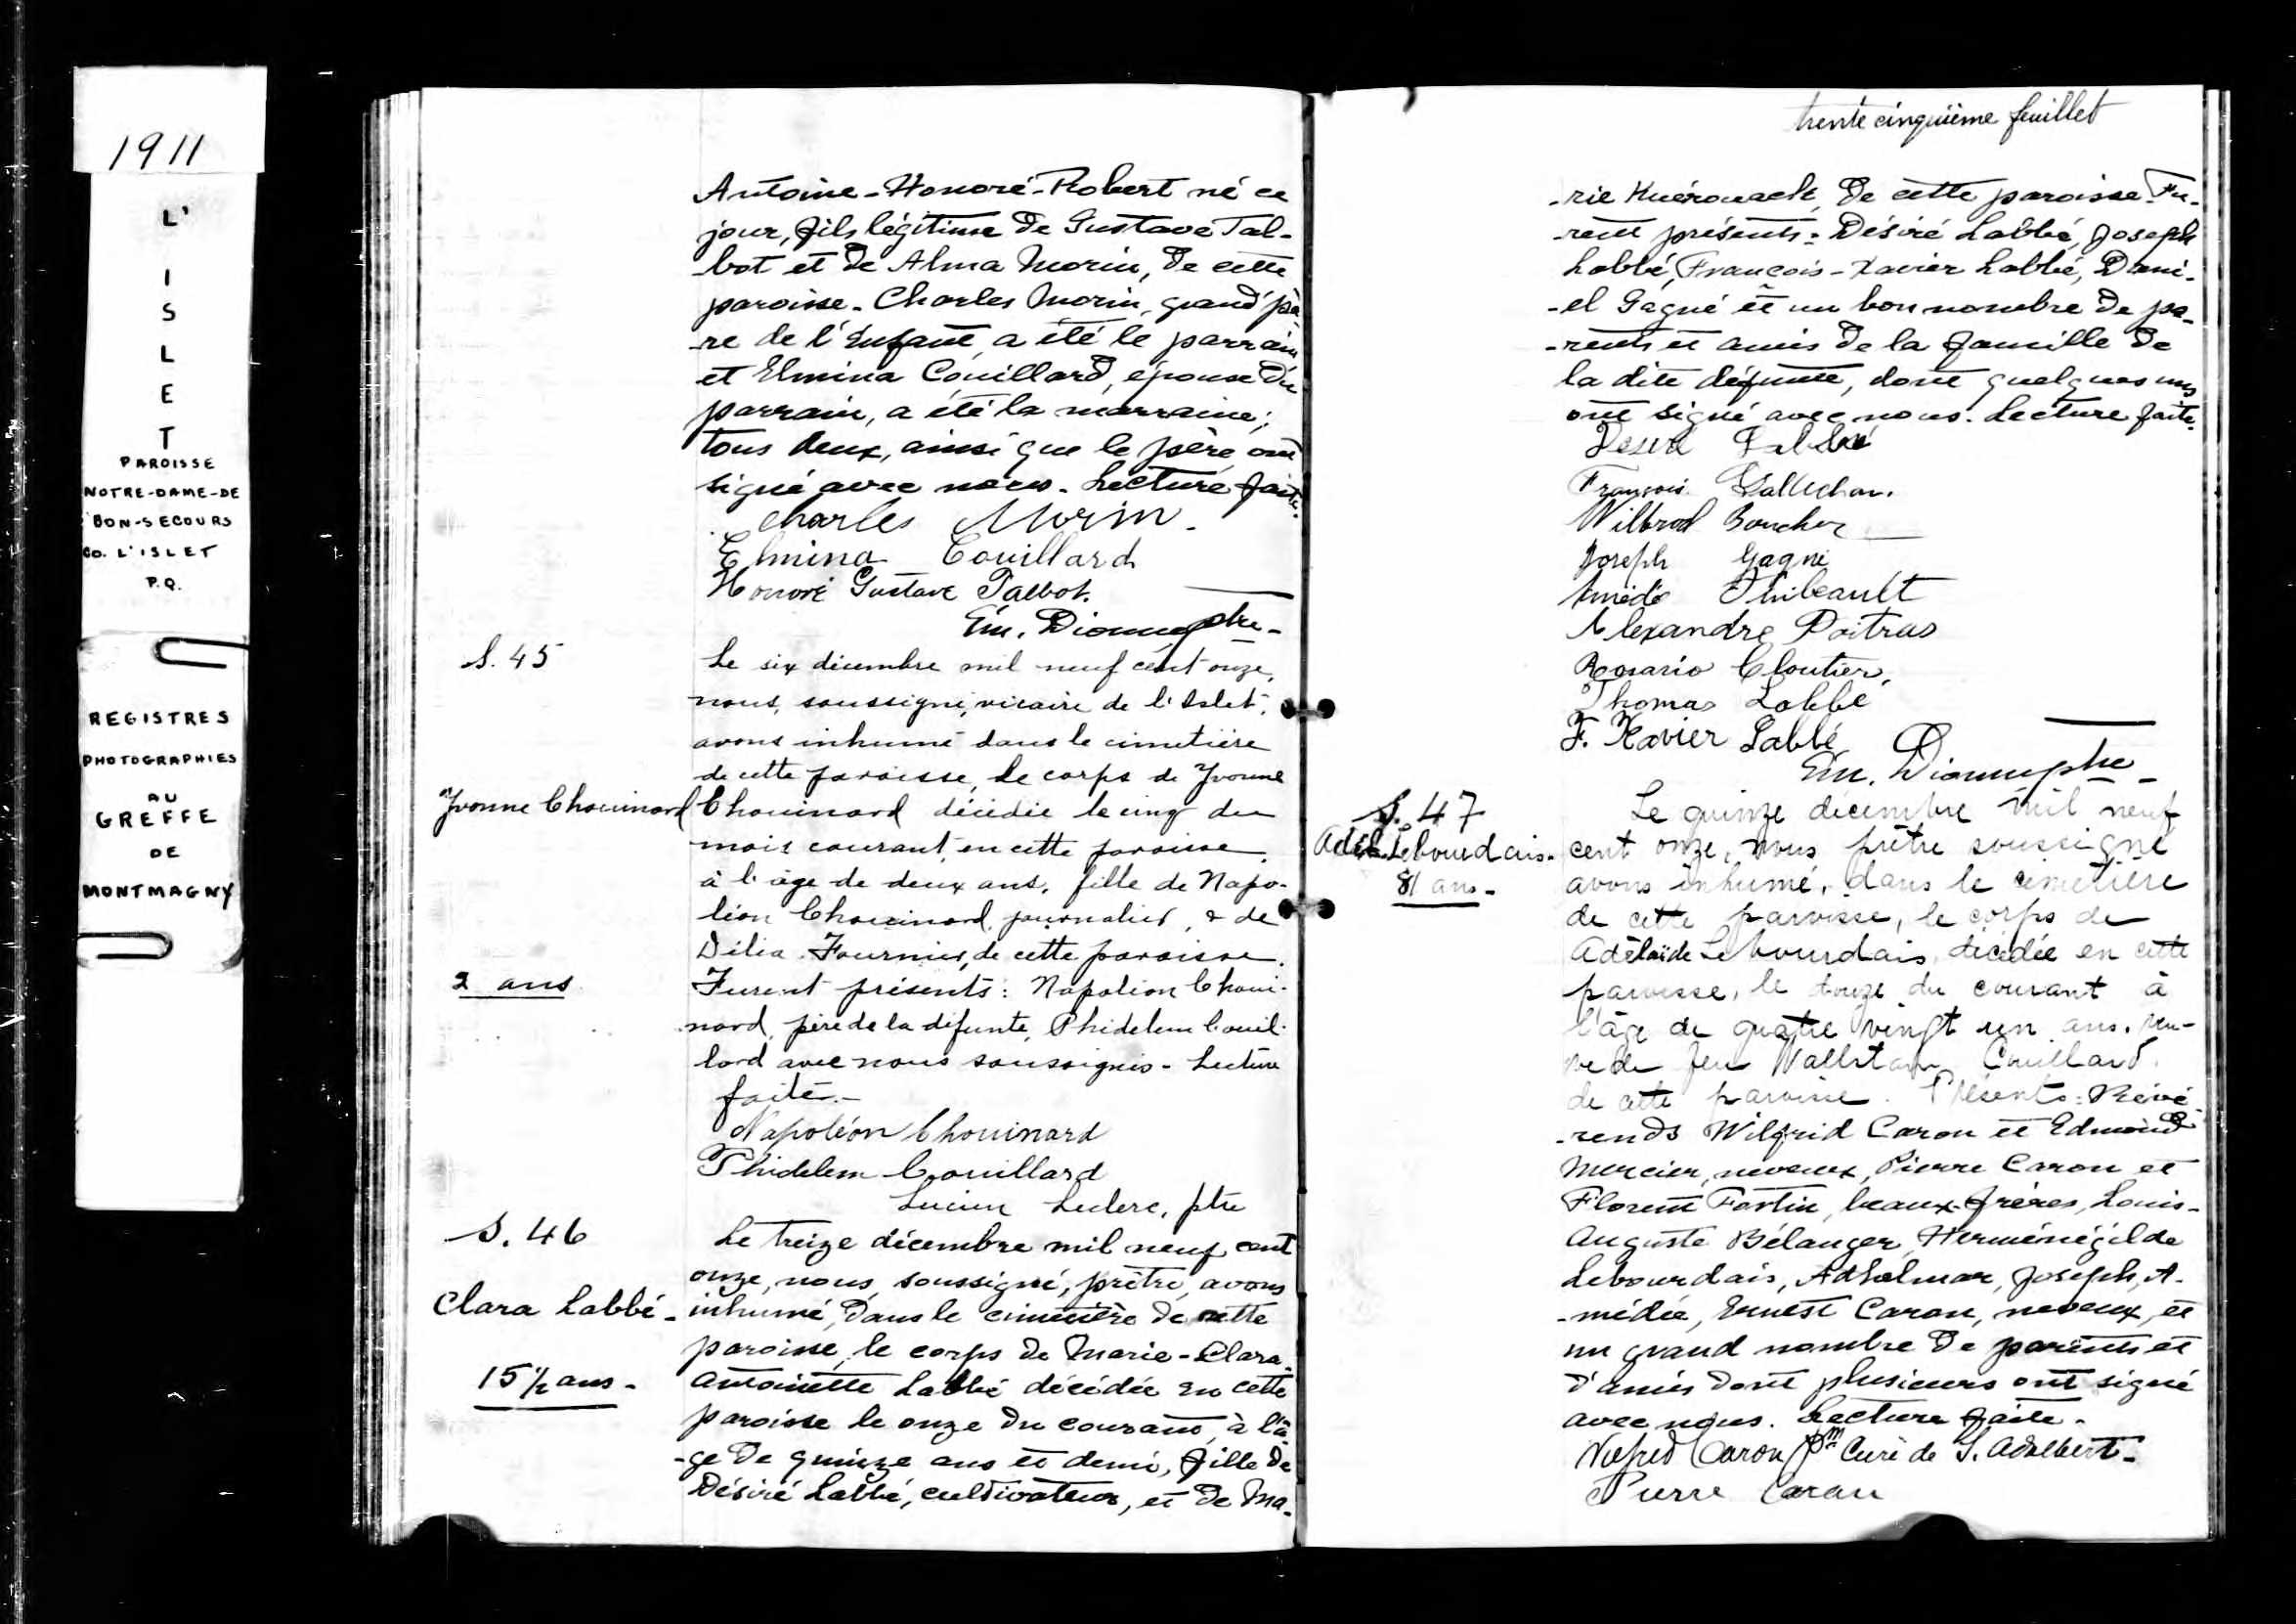 1911
L'
I
S
L
E
T
PAROISSE
NOTRE-DAME-DE
BON-SECOURS
CO. L'ISLET
P.Q.
REGISTRES
PHOTOGRAPHIES
AU
GREFFE
DE
MONTMAGNY
Antoine-Honoré-Robert né ce
jour, fils légitime de Gustave Tal-
bot et de Alma Morin, de cette
paroisse. Charles Morin, grand'pè-
re de l'enfant, a été le parrain
et Elmina Couillard, épouse du
parrain, a été la marraine;
tous deux, ainsi que le père ont
signé avec nous. Lecture faite.
Charles Morin.
Elmina Couillard
Honoré Gustave Talbot.
Em. Dionne, ptre
S. 45
Le six décembre mil neuf cent onze,
nous, soussigné, vicaire de l'Islet,
avons inhumé dans le cimetière
de cette paroisse, le corps de Yvonne
Yvonne Chouinard
Chouinard décédée le cinq du
mois courant, en cette paroisse,
à l'âge de deux ans, fille de Napo-
léon Chouinard, journalier, & de
Délia Fournier, de cette paroisse.
2 ans
Furent présents: Napoléon Choui-
nard, père de la défunte, Phidelem Couil-
lard avec nous soussignés - Lecture
faite.-
Napoléon Chouinard
Phidelem Couillard
Lucien Leclerc, ptre
S. 46
Le treize décembre mil neuf cent
onze, nous, soussigné, prêtre, avons
Clara Labbé -
inhumé, dans le cimetière de cette
paroisse, le corps de Marie-Clara-
15 1/2 ans -
Antoinette Labbé décédée en cette
paroisse le onze du courant, à l'â-
-ge de quinze ans et demi, fille de
Désiré Labbé, cultivateur, et de Ma-
trente cinquième feuillet
-rie Kuérouack, de cette paroisse. Fu-
-rent présents: Désiré Labbé, Joseph
Labbé, François-Xavier Labbé, Dani-
-el Gagné et un bon nombre de pa-
-rents et amis de la famille de
la dite défunte, dont quelques uns
ont signé avec nous. Lecture faite.
Desiré Labbé
François
Wilbrod Boucher
Joseph Gagné
Amédé Thibeault
Alexandre Poitras
Rosario Cloutier,
Thomas Labbé
F. Xavier Labbé
Em. Dionne ptre
S. 47
Le quinze décembre mil neuf
Adél. Lebourdais.
cent onze, nous prêtre soussigné
81 ans -
avons inhumé, dans le cimetière
de cette paroisse, le corps de
Adélaïde Lebourdais, décédée en cette
paroisse, le douze du courant à
l'âge de quatre vingt un ans, veu-
ve de feu Couillard.
de cette paroisse. Présents: Révé-
-rends Wilfrid Caron et Edmond
Mercier, neveux, Pierre Caron et
Florent Fortin, beaux-frères, Louis-
Auguste Bélanger, Herménégilde
Lebourdais, Adhelmar, Joseph, A-
-médée, Ernest Caron, neveux, et
un grand nombre de parents et
d'amis dont plusieurs ont signé
avec nous. Lecture faite.
Wilfred Caron Ptre Curé de S. Adalbert.
Pierre Caron